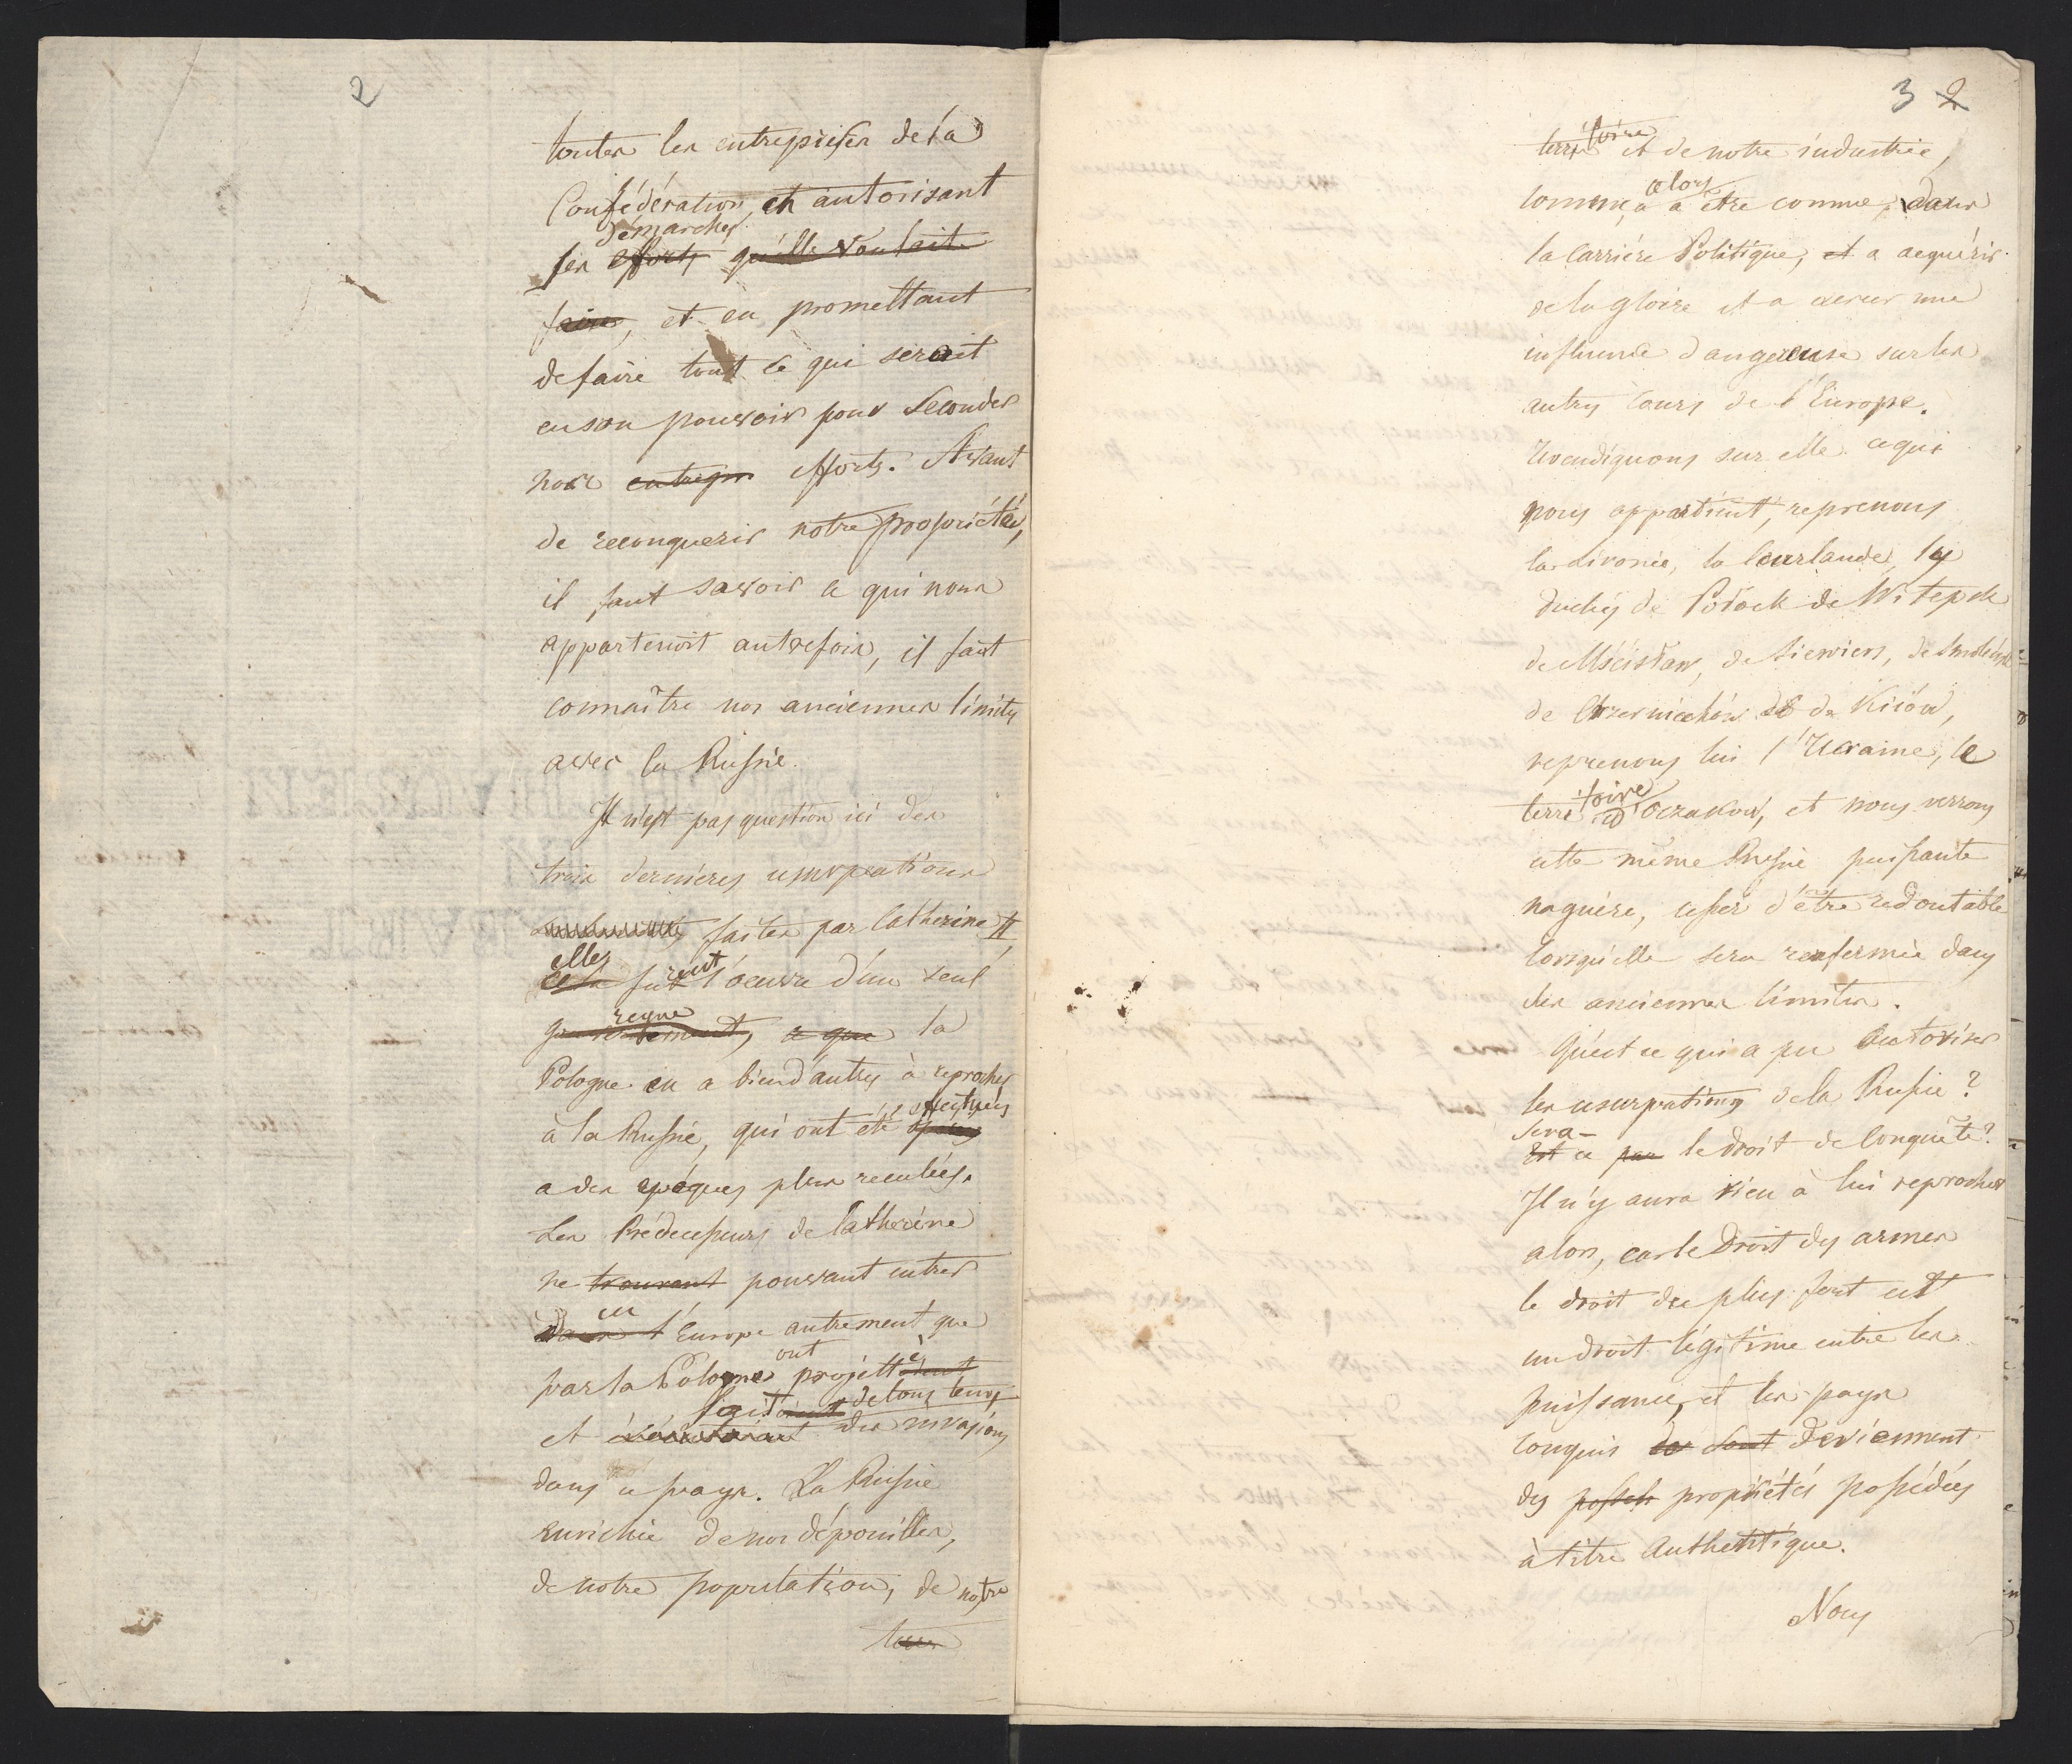 2
toutes les entreprises de la
Confédération, et autorisant
démarches
ses efforts qu'elle voulait
faire, et en promettant
de faire tout ce qui seroit
en son pouvoir pour seconder
nos entrepr efforts. Avant
de reconquerir notre propriété,
il faut savoir ce qui nous
appartenoit autrefois, il faut
connaître nos anciennes limites
avec la Russie.
Il n'est pas question ici des
trois dernieres usurpations
faites par Catherine II,
elles
cela furent l'oeuvre d'un seul
regne
ce que la
Pologne en a bien d'autres à reprocher
à la Russie, qui ont été effectuées
a des epóques plus reculées.
Les Prédecesseurs de Catherine
ne trouvant pouvant entrer
en
dans l'Europe autrement que
ont
par la Pologne projetté
de tous tems
et des invasions
dans ce pays. La Russie
enrichie de nos dépouilles,
de notre population, de notre
terr
3 2
toire
terri et de notre industrie,
alors
commença a être connue, dans
la Carriére Politique, et a acquérir
de la gloire et a exercer une
influence dangereuse sur les
autres Cours de l'Europe.
Revendiquons sur elle ce qui
nous appartient, reprenons
la Livonie, la Courlande, les
duchés de Połock de Witepsk
de Mścisław, de Siewiers, de Smolénsk
de Czerniechów et de Kiiów,
reprenons lui l'Ucraine, le
toire
terri d'Oczakow, et nous verrons
cette même Russie puissante
naguère, cesser d'être redoutable
lorsqu'elle sera renfermée dans
ses anciennes limites.
Qu'est ce qui a pu autoriser
les usurpations de la Russie?
Sera-
Est ce par le droit de Conquête?
Il n'y aura rien à lui reprocher
alors, car le Droit des armes
le droit du plus fort est
un droit légitime entre les
puissances, et les pays
conquis sont deviennent
des possed propriétés possédées
à titre Authentique.
Nous